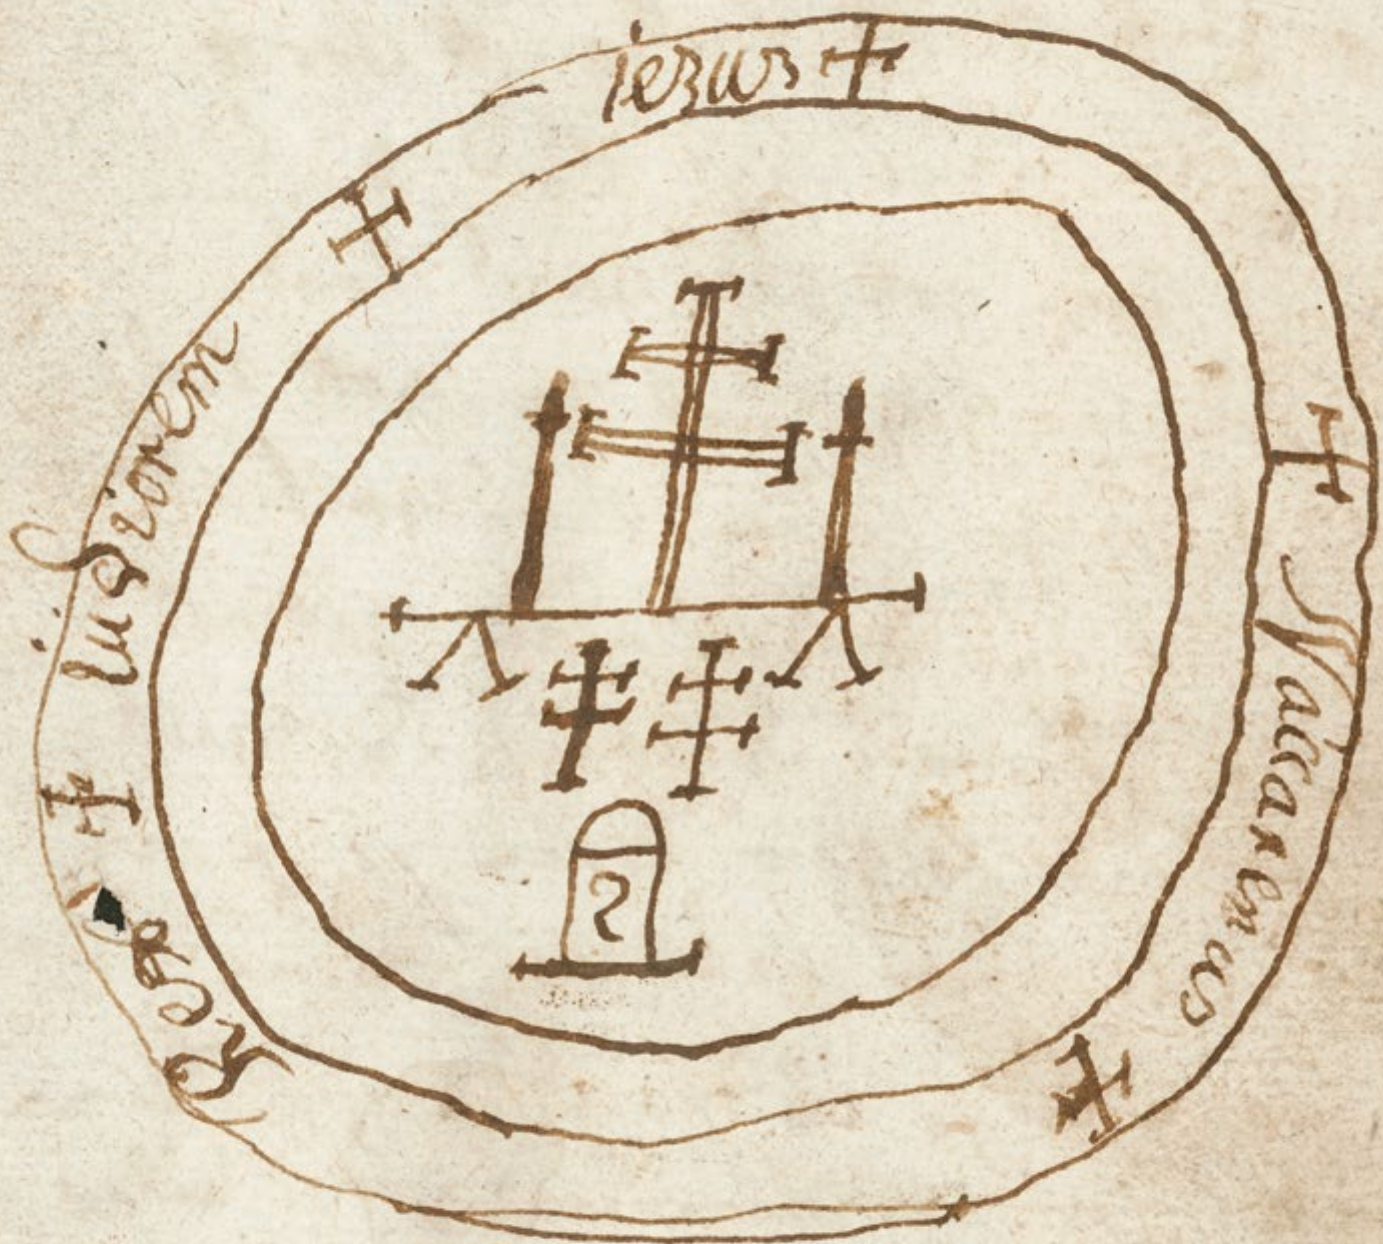 iezus +
+ Naicarenus
+
Rex
+ iudiorem
+
2